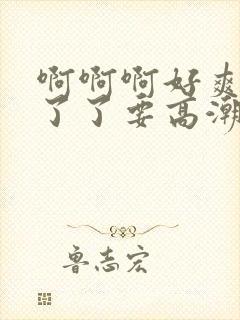 啊啊啊好爽
了了要高潮
鲁志宏